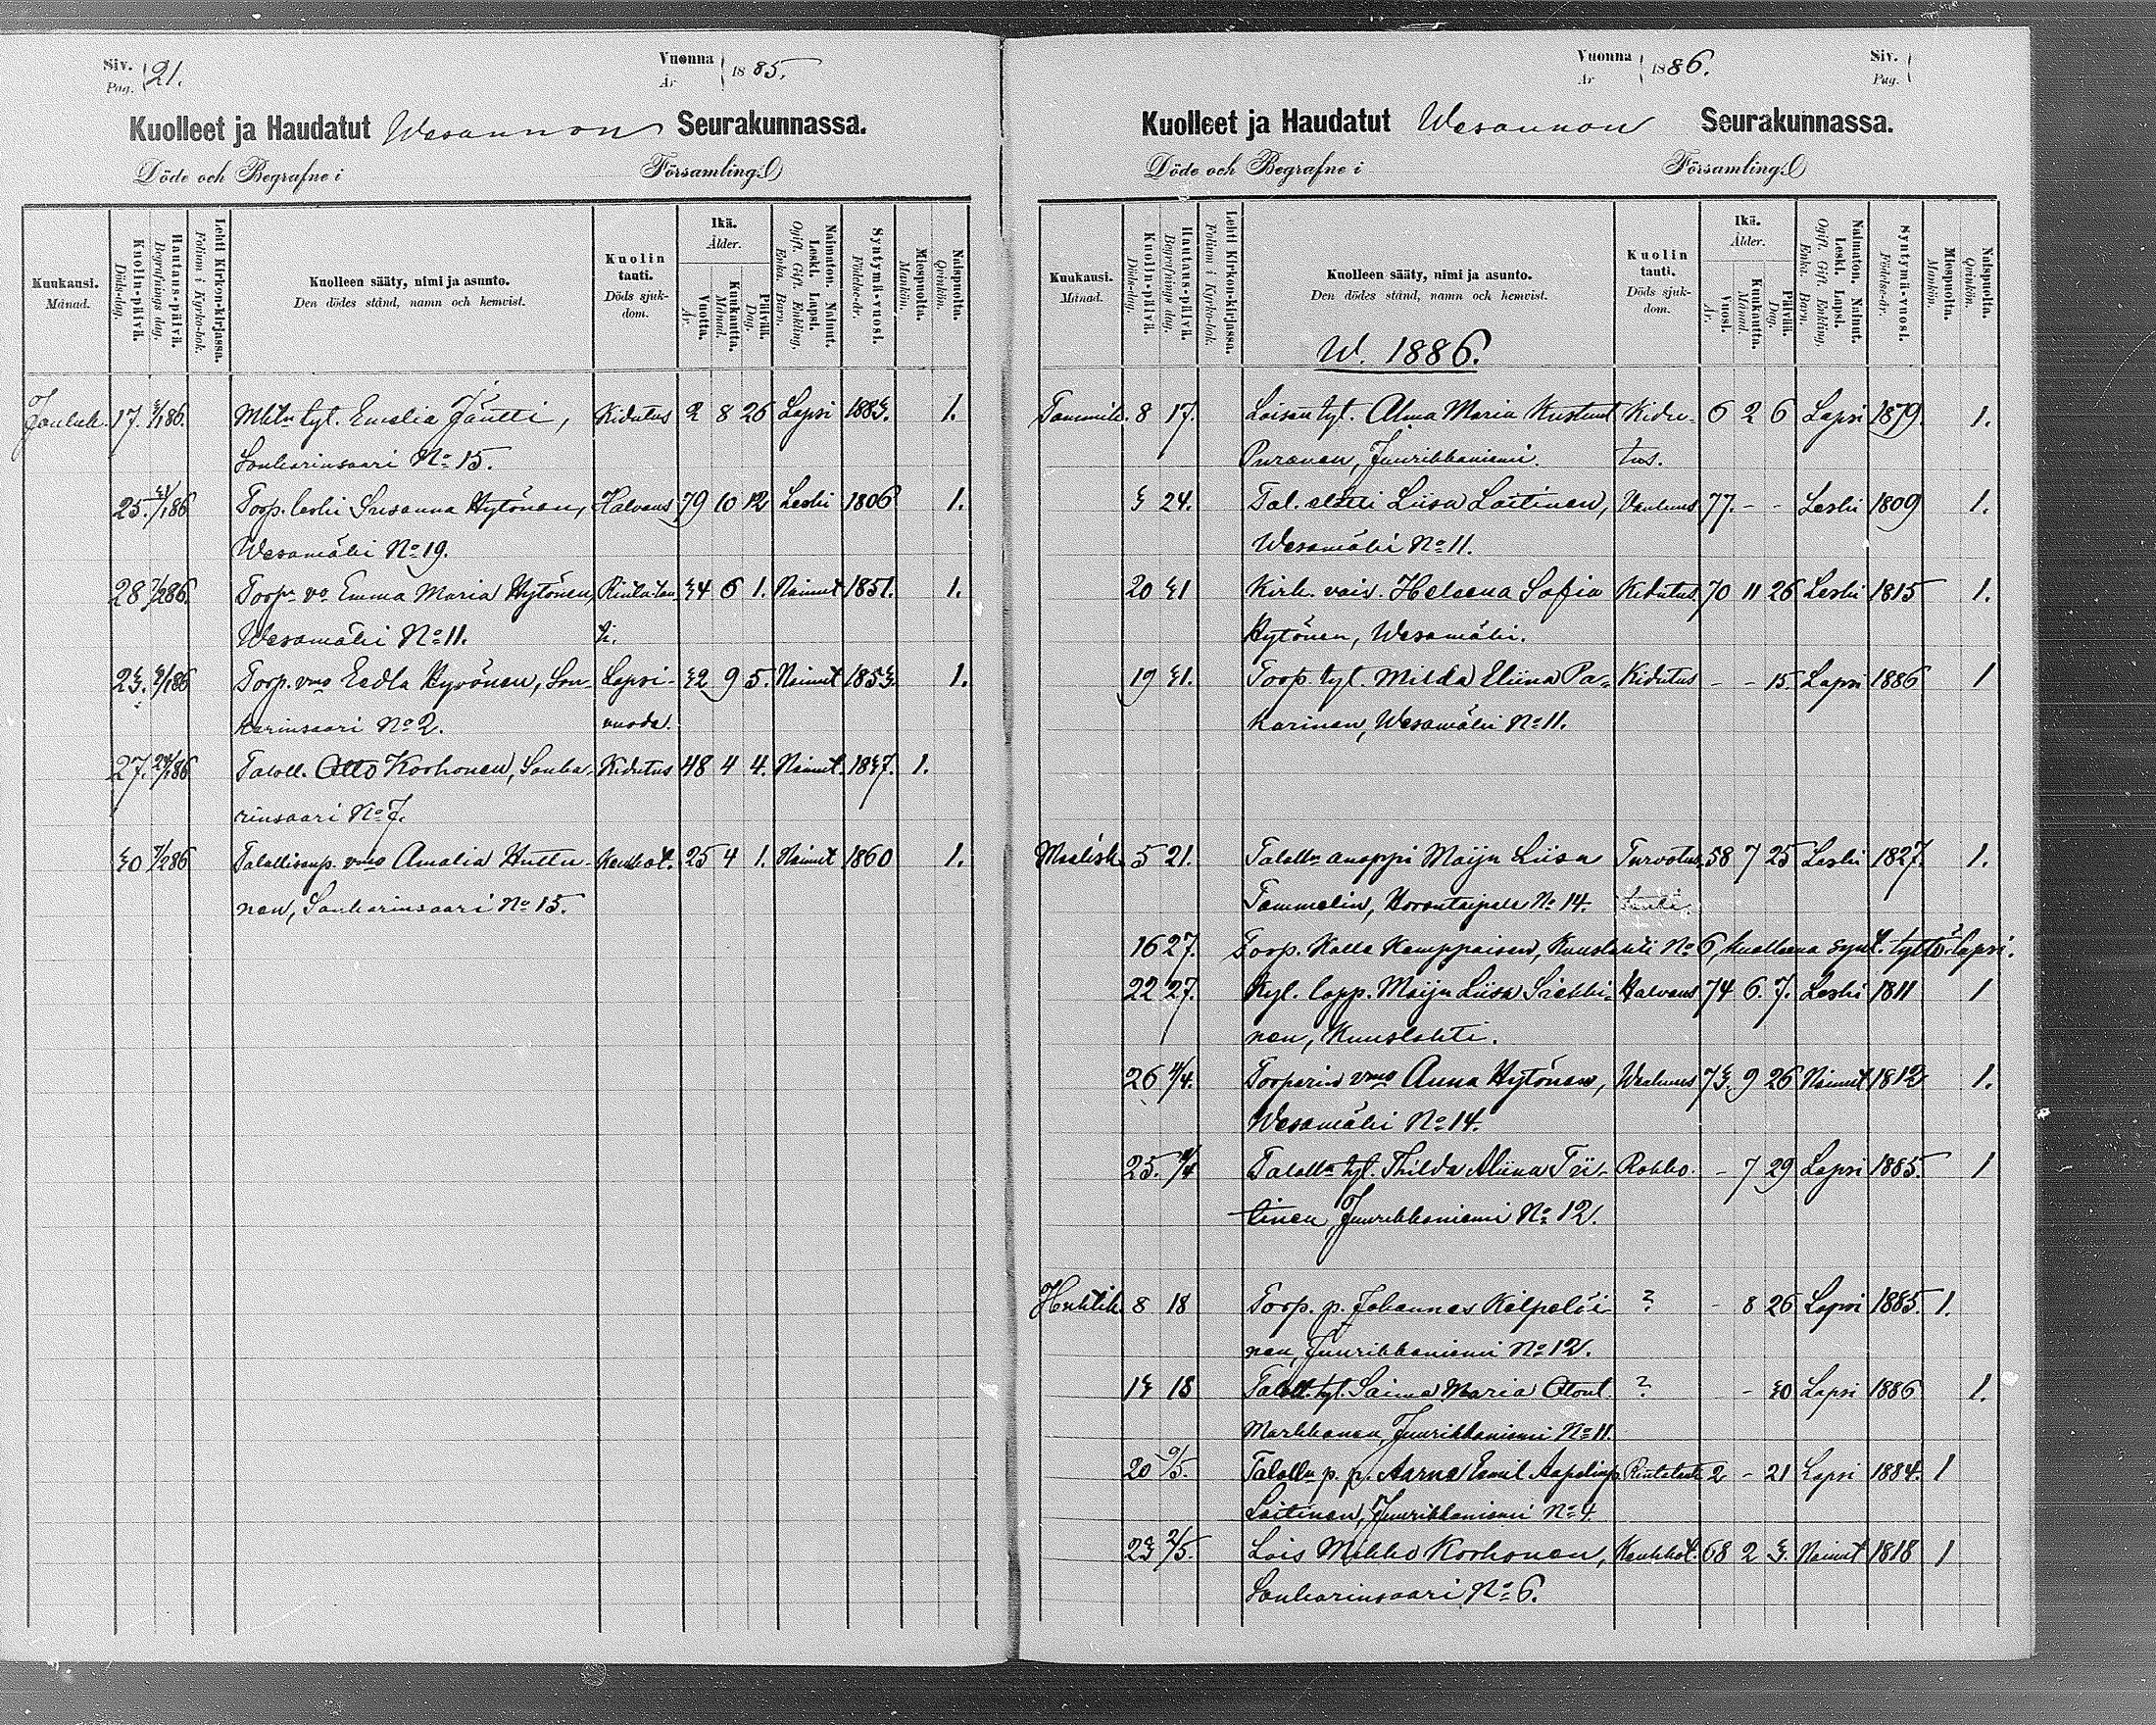 Siv. Pag. 21.
Vuonna År 1885.
Kuolleet ja Haudatut Wesannon Seurakunnassa.
Döde och Begrafne i Församling.
Kuukausi. Månad.
Kuolin-päivä. Döds-dag.
Hautaus-päivä. Begrafnings dag.
Lehti Kirkon-kirjassa. Folium i Kyrko-bok.
Kuolleen sääty, nimi ja asunto.
Den dödes stånd, namn och hemvist.
Kuolin tauti. Döds sjukdom.
Ikä. Ålder.
Vuotta. År.
Kuukautta. Månad.
Päivää. Dag.
Naimaton. Nainut. Leski. Lapsi.
Ogift. Gift. Enkling. Enka. Barn.
Syntymä-vuosi. Födelse-år.
Miespuolta. Mankön.
Naispuolta. Qvinkön.
Jouluk. 17. 3/1 86. Mktn tyt. Emelia Jäntti, Kidutus 2 8 26 Lapsi 1883. 1.
Sonkarinsaari No 15.
25. 31/1 86 Torp. leski Susanna Hytönen, Halvaus 79 10 12 Leski 1806 1.
Wesamäki No 19.
28 7/2 86. Torp. vo Emma Maria Hytönen, Rintatau- 34 6 1. Nainut 1851. 1.
Wesamäki No 11. ti.
23. 3/1 86 Torp. vmo Eedla Hyvönen, Son- Lapsi- 32 9 5. Nainut 1853. 1.
karinsaari No 2. vuode.
27. 24/1 86 Taloll. Otto Korhonen, Sonka- Kidutus 48 4 4. Nainut. 1837. 1.
rinsaari No 7.
30 7/2 86 Talollisenp. vmo Amalia Huttu- Keuhkot. 25 4 1. Nainut 1860 1.
nen, Sonkarinsaari No 15.
Vuonna År 1886.
Siv. Pag.
Kuolleet ja Haudatut Wesannon Seurakunnassa.
Döde och Begrafne i Församling.
Kuukausi. Månad.
Kuolin-päivä. Döds-dag.
Hautaus-päivä. Begrafnings dag.
Lehti Kirkon-kirjassa. Folium i Kyrko-bok.
Kuolleen sääty, nimi ja asunto.
Den dödes stånd, namn och hemvist.
Kuolin tauti. Döds sjukdom.
Ikä. Ålder.
Vuosi. År.
Kuukautta. Månad.
Päivää. Dag.
Naimaton. Nainut. Leski. Lapsi.
Ogift. Gift. Enkling. Enka. Barn.
Syntymä-vuosi. Födelse-år.
Miespuolta. Mankön.
Naispuolta. Qvinkön.
W. 1886.
Tammik. 8 17. Loisen tyt. Alma Maria Kustaat. Kidu- 6 2 6 Lapsi 1879. 1.
Puranen, Juurikkaniemi. tus.
3 24. Tal. elätti Liisa Laitinen, Vanhuus 77. - - Leski 1809 1.
Wesamäki No 11.
20 31 Kirk. vaiv. Heleena Sofia Kidutus 70 11 26 Leski 1815 1.
Hytönen, Wesamäki.
19 31. Torp. tyt. Milda Eliina Pa- Kidutus - - 15. Lapsi 1886 1
karinen, Wesamäki No 11.
Maalisk. 5 21. Talolln anoppi Maija Liisa Turvotus 58 7 25 Leski 1827. 1.
Tammelin, Horontaipale No 14. tauti.
16 27. Torp. Kalle Kemppaisen, Kuuslahti No 6, kuolleena synt. tyttölapsi.
22 27. Kyl. lapp. Maija Liisa Siekki- Halvaus 74 6. 7. Leski 1811 1
nen, Kuuslahti.
26 4/4. Torparin vmo Anna Hytönen, Wanhuus 73. 9 26 Nainut 1812 1.
Wesamäki No 14.
25. 4/4 Talolln tyt. Thilda Aliina Tii- Rokko. - 7 29 Lapsi 1885. 1
tinen, Juurikkaniemi No 12.
Huhtik. 8 18 Torp. p. Johannes Kilpeläi- ? - 8 26 Lapsi 1885. 1.
nen, Juurikkaniemi No 12.
13 18 Taloll. tyt. Saima Maria Otont. ? - 30 Lapsi 1886 1.
Markkanen, Juurikkaniemi No 11.
20 9/5. Talolln p. p. Aarne Eemil Aapelinp. Rintataut. 2 - 21 Lapsi 1884. 1
Laitinen, Juurikkaniemi No 4
23 2/5. Lois Mikko Korhonen, Keuhkot. 68 2 3. Nainut 1818 1
Sonkarinsaari No 6.